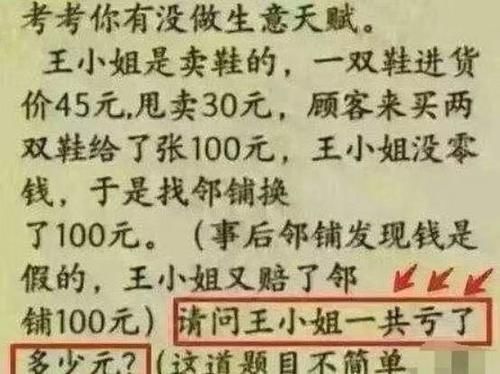 考考你有没做生意天赋。
王小姐是卖鞋的，一双鞋进货
价45元,甩卖30元，顾客来买两
双鞋给了张100元，王小姐没零
钱，于是找邻铺换
了100元。（事后邻铺发现钱是
假的，王小姐又赔了邻
铺100元）请问王小姐一共亏了
多少元？（这道题目不简单